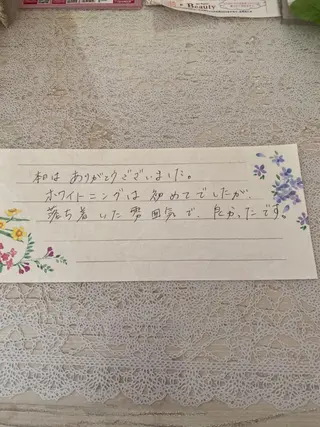 Beauty
本日はありがとうございました。
ホワイトニングは初めてでしたが、
落ち着いた雰囲気で、良かったです。